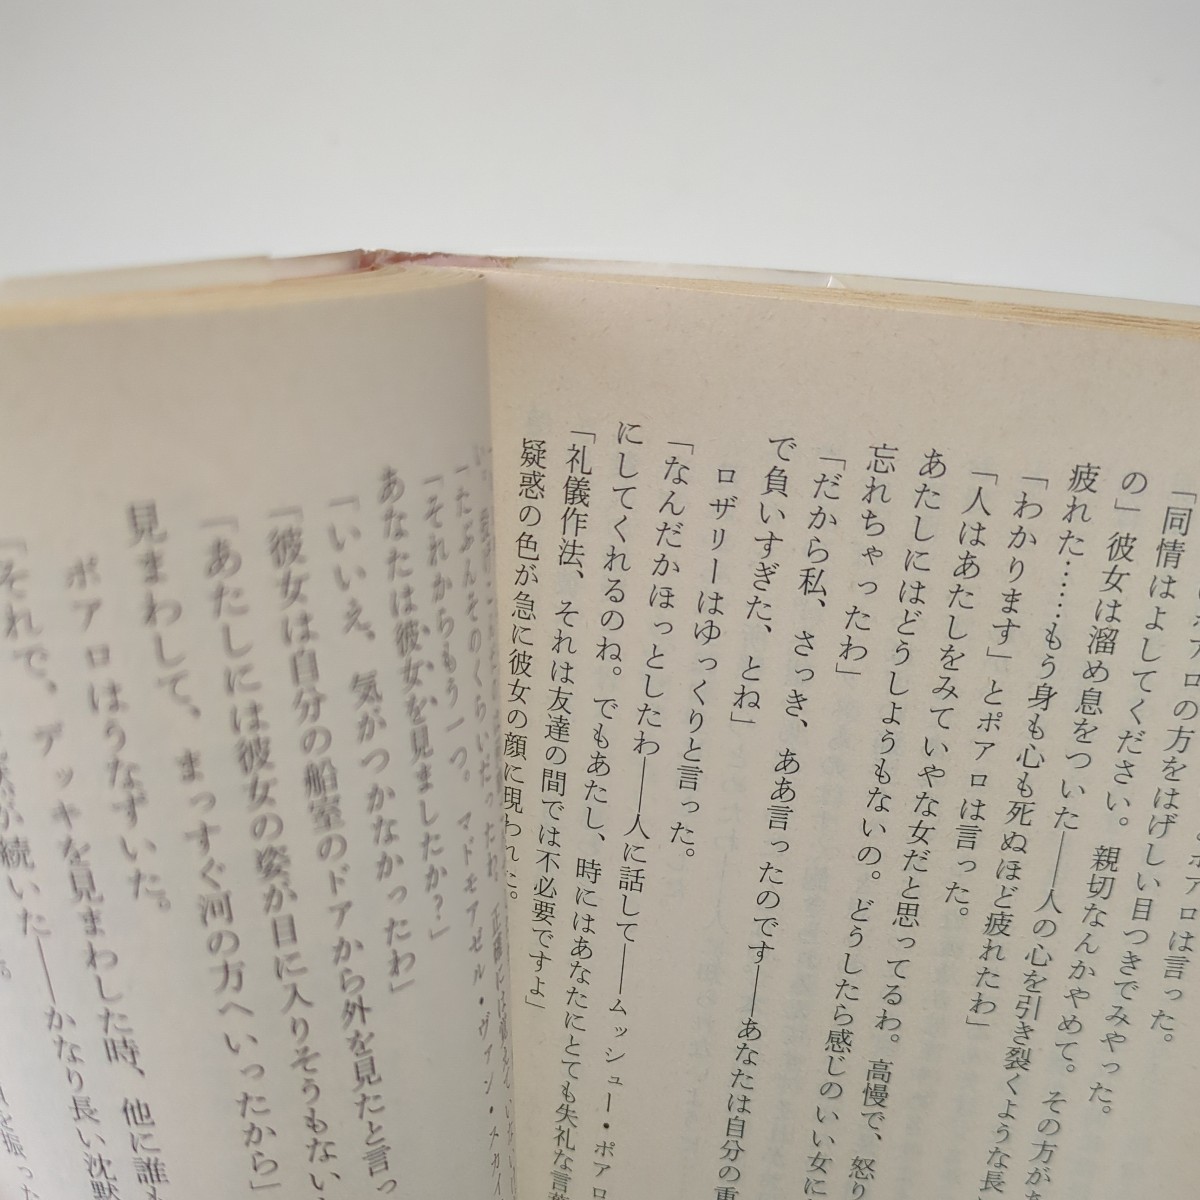 ポアロは言った。
「同情はよしてください。親切なんかやめて。その方が
の」彼女は溜め息をついた――人の心を引き裂くような長
疲れた……もう身も心も死ぬほど疲れたわ」
「わかります」とポアロは言った。
「人はあたしをみていやな女だと思ってるわ。高慢で、怒り
あたしにはどうしようもないの。どうしたら感じのいい女に
忘れちゃったわ」
「だから私、さっき、ああ言ったのです――あなたは自分の重
で負いすぎた、とね」
ロザリーはゆっくりと言った。
「なんだかほっとしたわ――人に話して――ムッシュー・ポアロ
にしてくれるのね。でもあたし、時にはあなたにとても失礼な言葉
「礼儀作法、それは友達の間では不必要ですよ」
疑惑の色が急に彼女の顔に現われた。
「たぶんそのくらいだったわ。
「それからもう一つ。マドモアゼル・ヴァン・スカイ
あなたは彼女を見ましたか？」
「いいえ、気がつかなかったわ」
「彼女は自分の船室のドアから外を見たと言っ
「あたしには彼女の姿が目に入りそうもない
見まわして、まっすぐ河の方へいったから」
ポアロはうなずいた。
「それで、デッキを見まわした時、他に誰も
が続いた――かなり長い沈黙
を振った